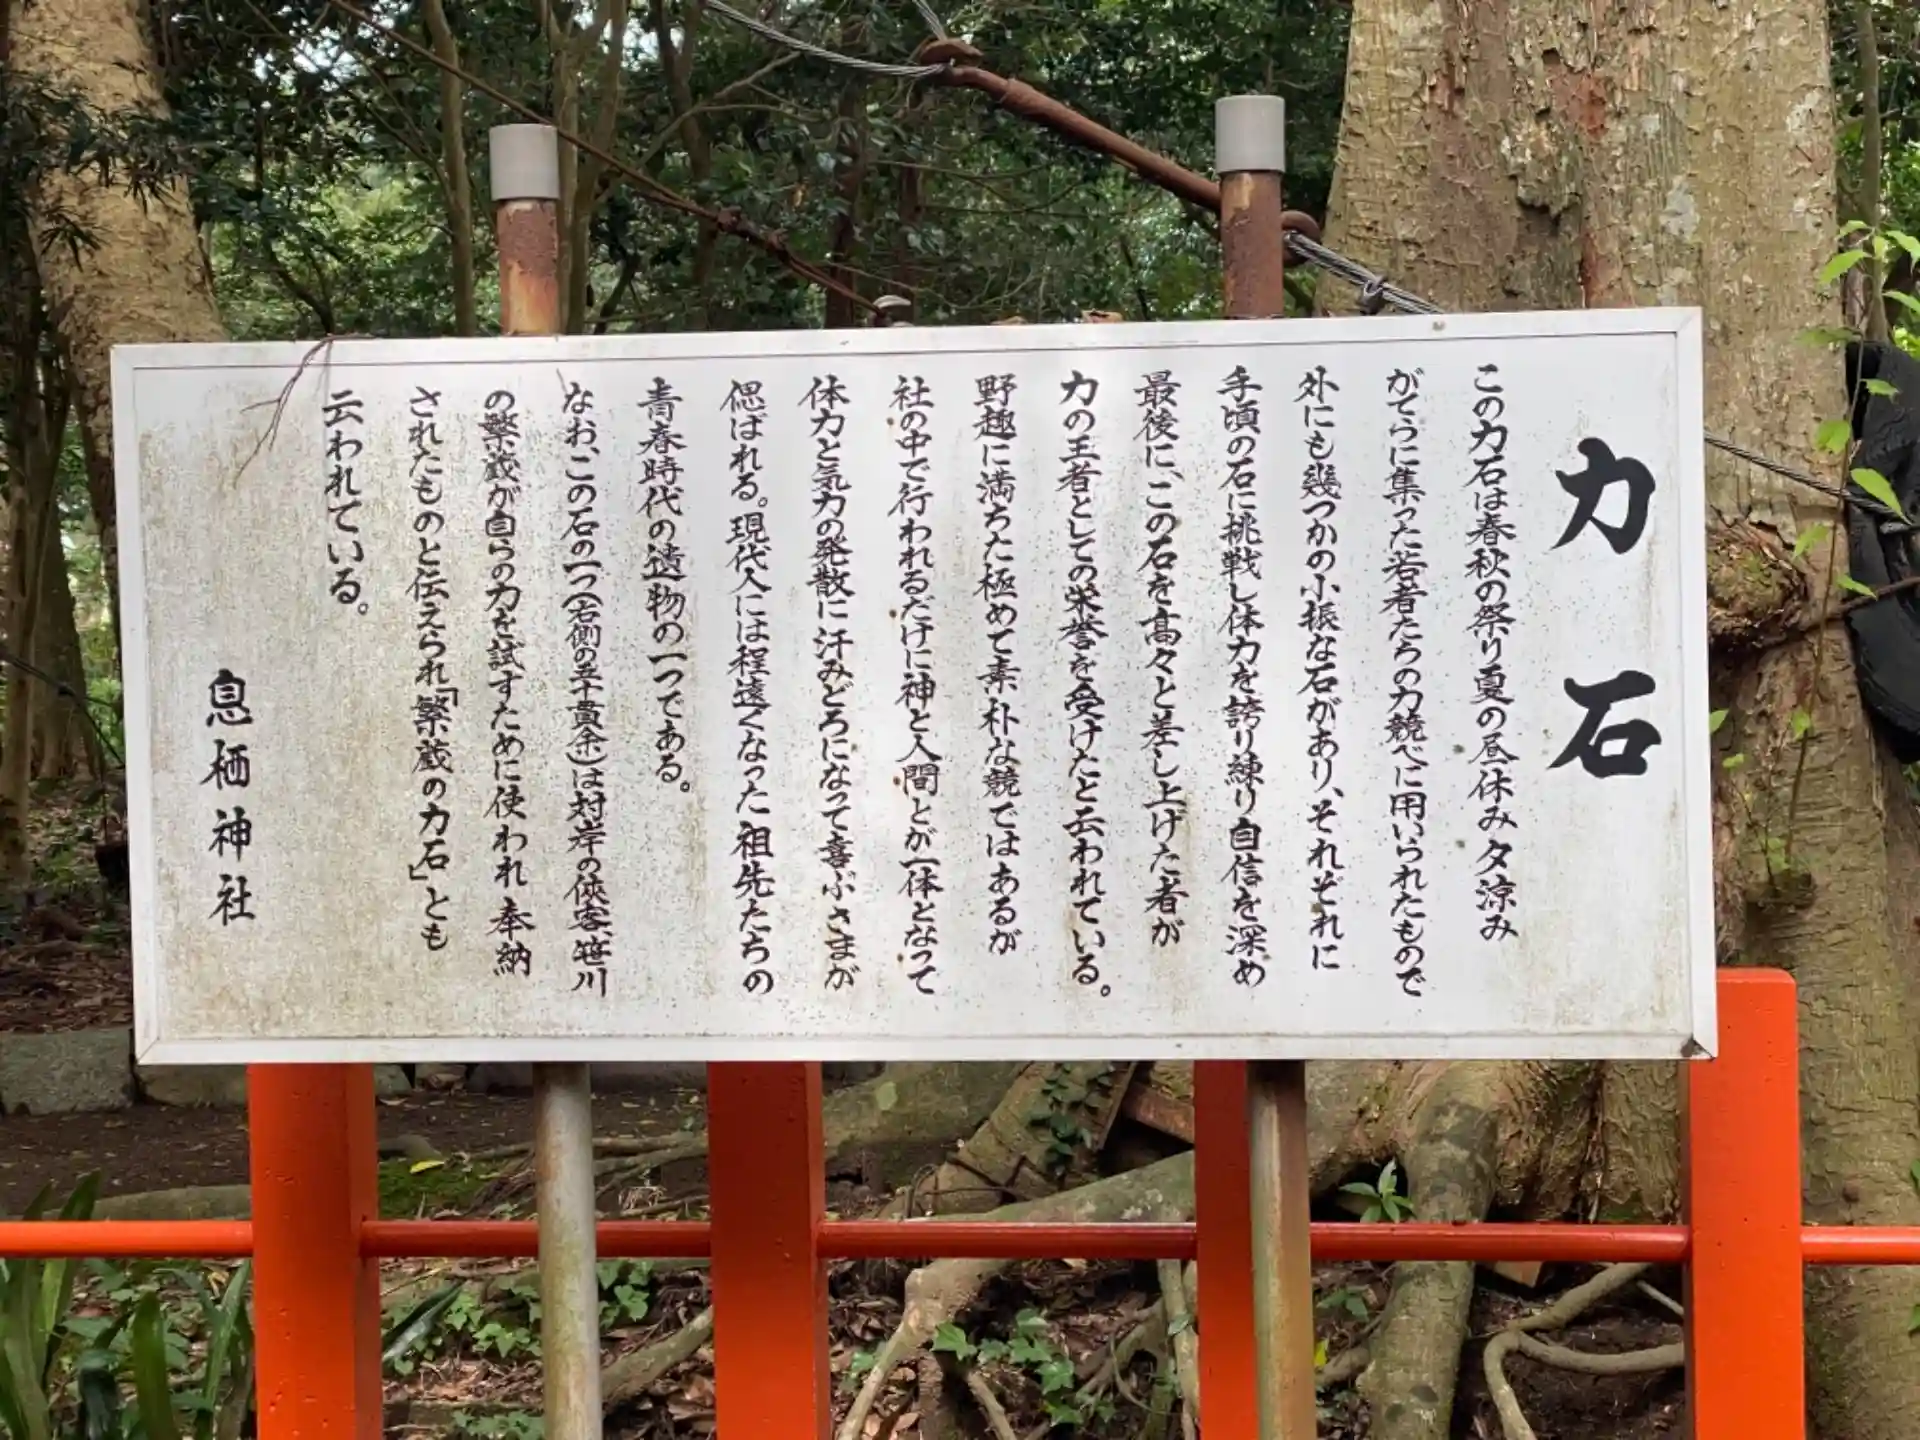 力石
この力石は春秋の祭り夏の昼休み夕涼み
がてらに集った若者たちの力競べに用いられたもので
外にも幾つかの小振な石があり、それぞれに
手頃の石に挑戦し体力を誇り練り自信を深め
最後に、この石を高々と差し上げた者が
力の王者としての栄誉を受けたと云われている。
野趣に満ちた極めて素朴な競ではあるが
社の中で行われるだけに神と人間とが一体となって
体力と気力の発散に汗みどろになって喜ぶさまが
偲ばれる。現代人には程遠くなった祖先たちの
青春時代の遺物の一つである。
なお、この石の一つ(右側の五十貫余)は対岸の侠客、笹川
の繁蔵が自らの力を試すために使われ奉納
されたものと伝えられ「繁蔵の力石」とも
云われている。
息栖神社